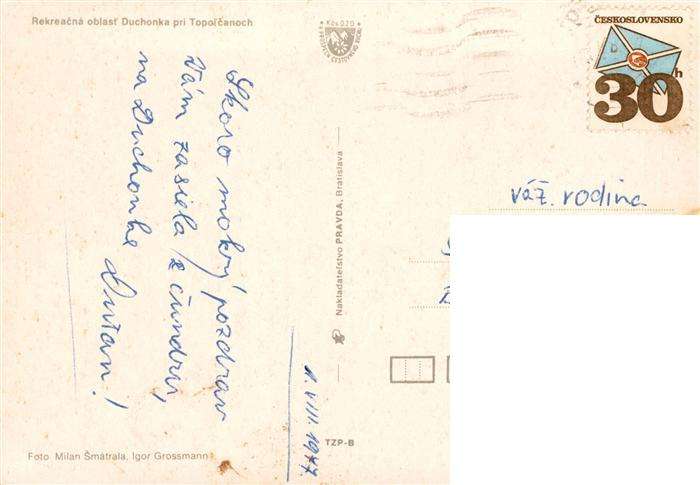 Rekreačná oblasť Duchonka pri Topoľčanoch
ČESKOSLOVENSKO
30h
Skoro mokrý pozdrav
Vám zasiela z čundru,
na Duchonke Dušan!
1. VIII. 1977.
váž. rodina
Nakladateľstvo PRAVDA, Bratislava
TZP-B
Foto Milan Šmátrala, Igor Grossmann